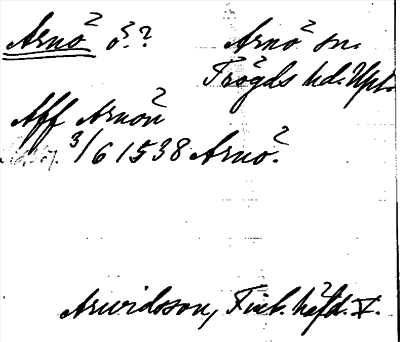 Arnö ö.? Arnö sn.
Trögds hd. Upl.
Aff Arnön
3/6 1538 Arnö.
Arwidsson, Finl. häfd. V.